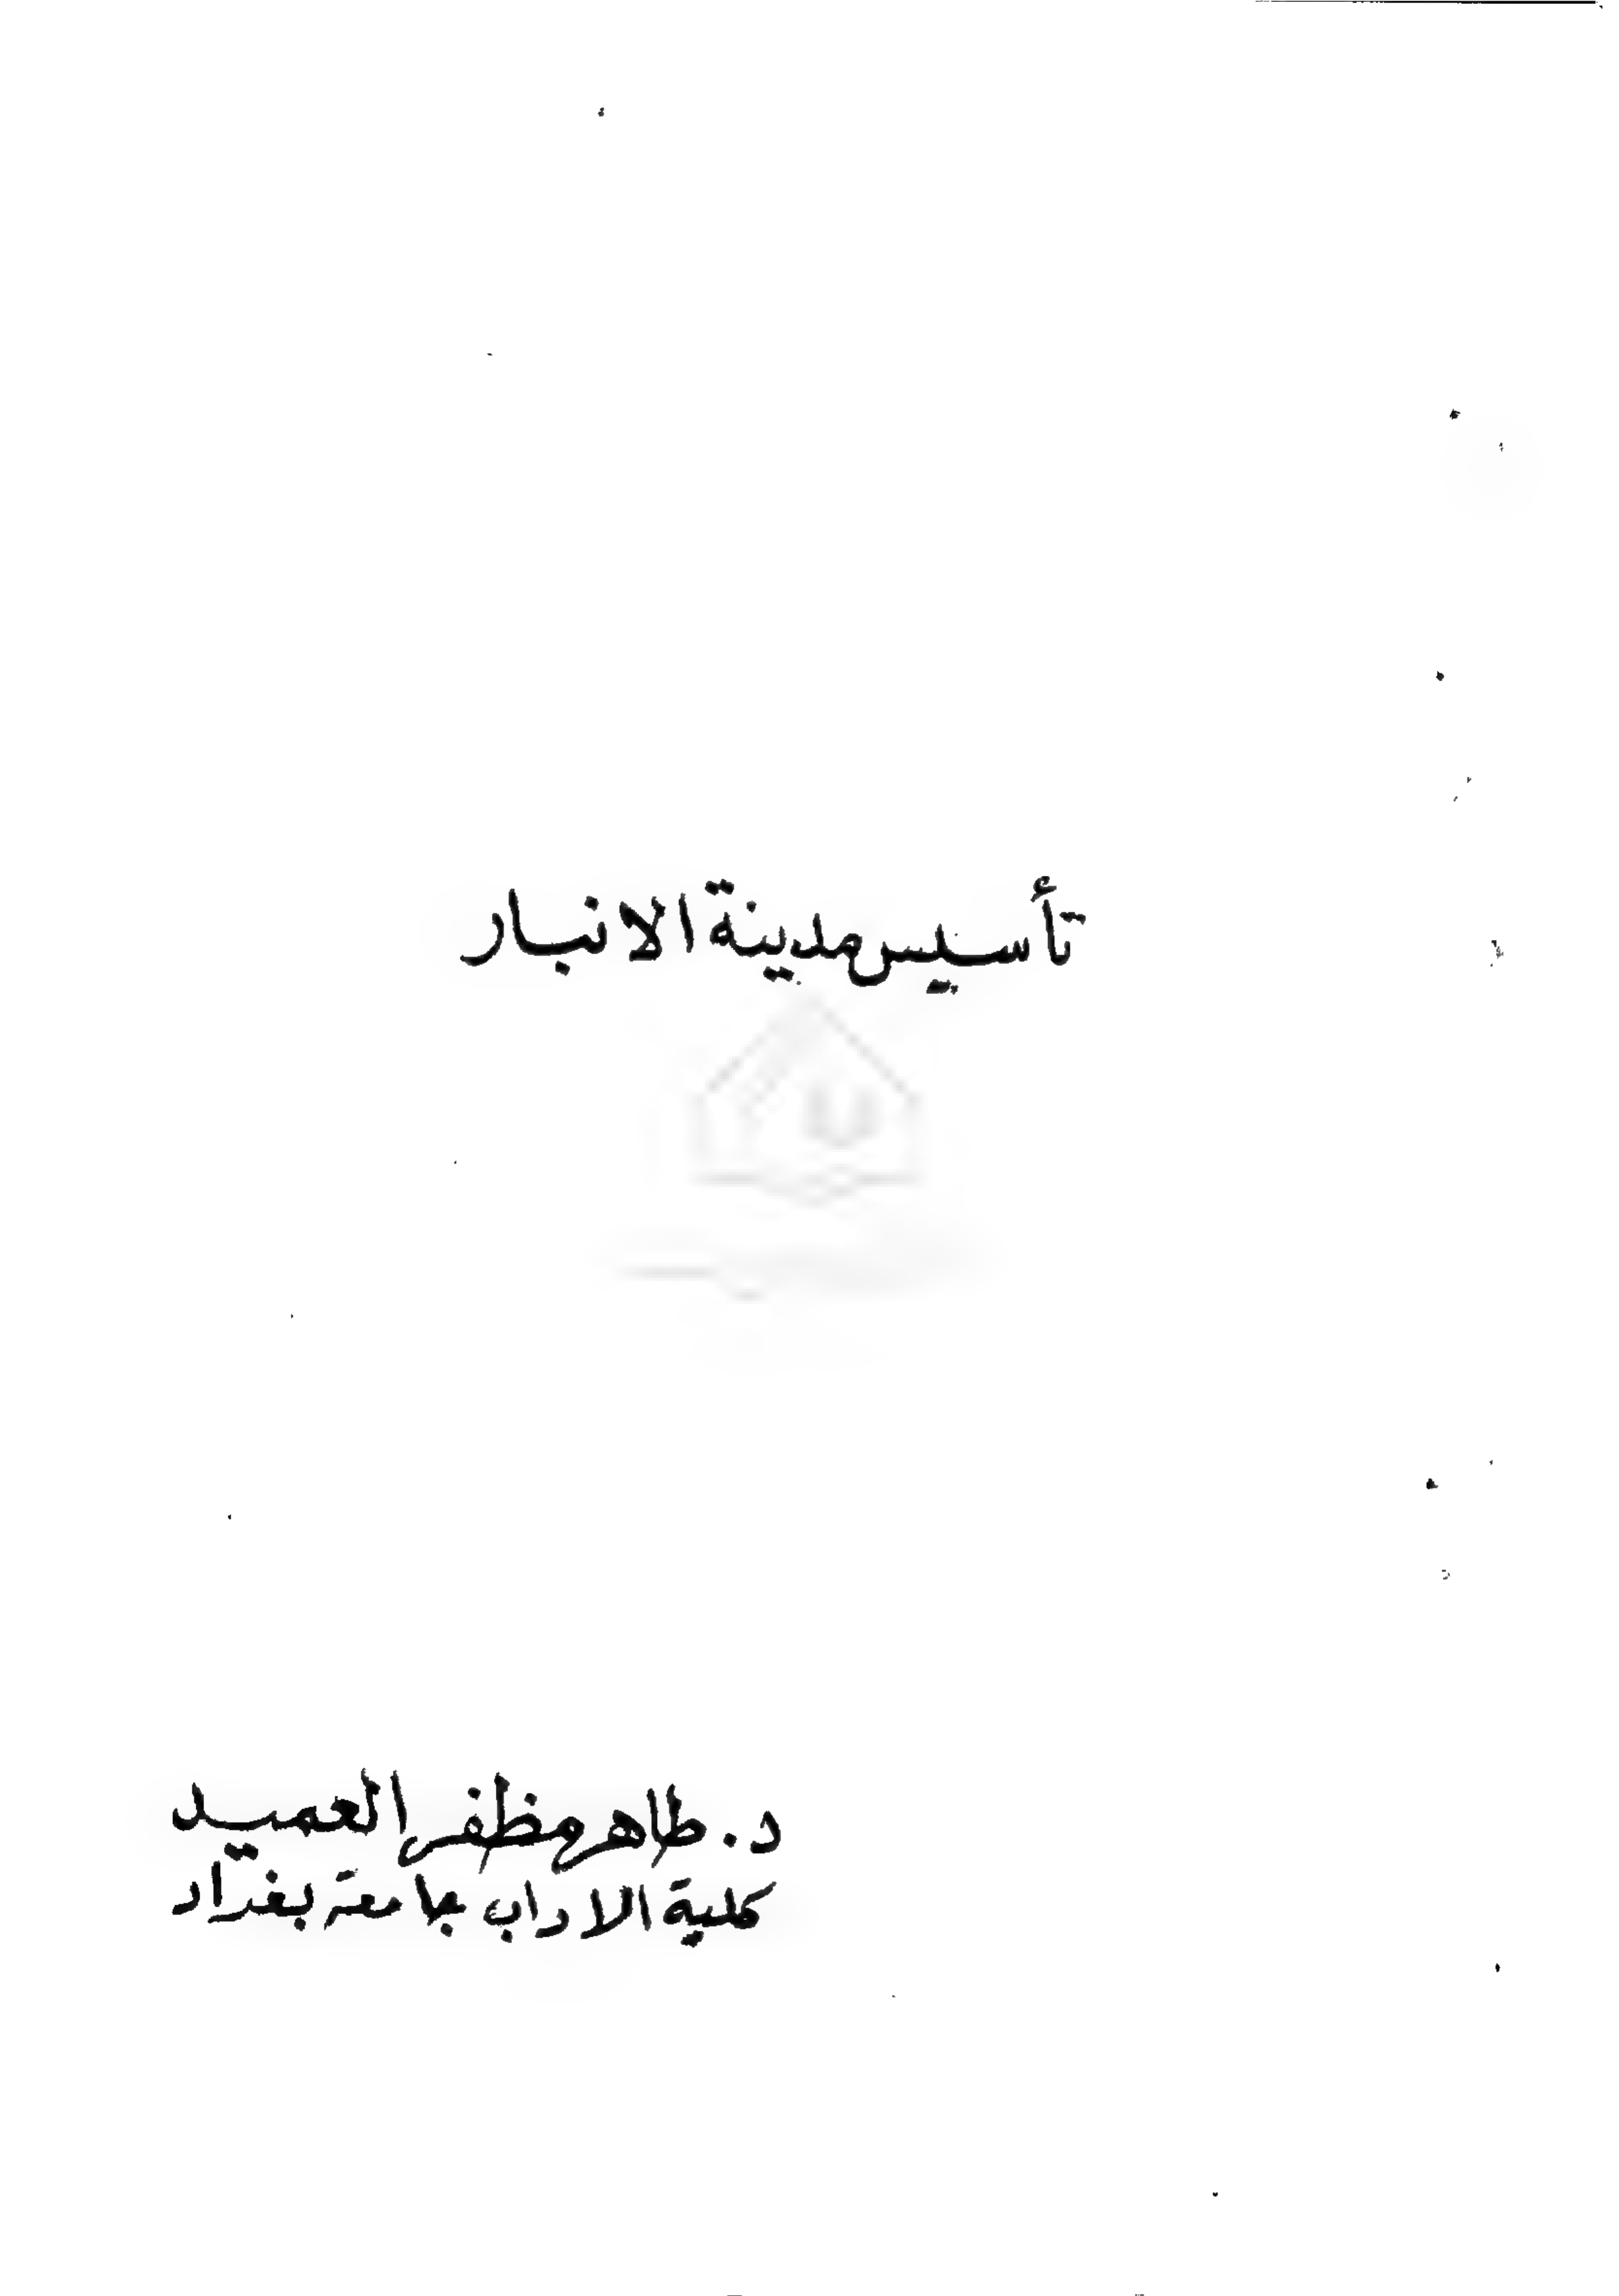 تأسيس مدينة الانبار
د. طاهر مظفر العميد
كلية الاداب جامعة بغداد